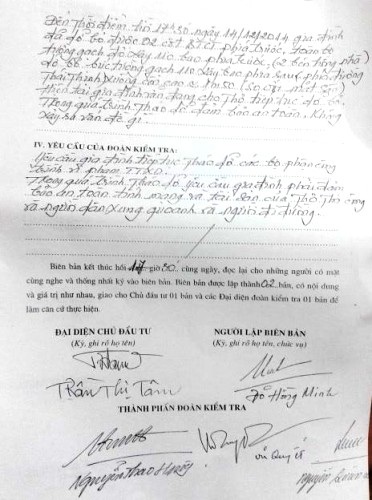 Đến thời điểm 17h30 ngày 14/12/2014 gia đình
đã dỡ bỏ được 02 cột BTCT phía trước, toàn bộ
tường gạch đã xây 110 bao phía trước, (2 bên tường nhà)
đổ bỏ bức tường gạch 110 xây bao phía sau
Thái Thịnh xuống
Hiện tại gia đình vẫn đang cho thợ tiếp tục dỡ bỏ.
Trong quá trình tháo dỡ đảm bảo an toàn. Không
xảy ra vấn đề gì.
IV. YÊU CẦU CỦA ĐOÀN KIỂM TRA:
Yêu cầu gia đình tiếp tục tháo dỡ các bộ phận công
trình vi phạm TTXD.
Trong quá trình tháo dỡ yêu cầu gia đình phải đảm
bảo an toàn tính mạng và tài sản của thợ thi công
và người dân xung quanh và người đi đường.
Biên bản kết thúc hồi 17 giờ 50, cùng ngày, đọc lại cho những người có mặt
cùng nghe và thống nhất ký vào biên bản. Biên bản được lập thành 02 bản, có nội dung
và giá trị như nhau, giao cho Chủ đầu tư 01 bản và các Đại diện đoàn kiểm tra 01 bản để
làm căn cứ thực hiện.
ĐẠI DIỆN CHỦ ĐẦU TƯ
(Ký, ghi rõ họ tên)
Trần Thị Tâm
NGƯỜI LẬP BIÊN BẢN
(Ký, ghi rõ họ tên, chức vụ)
Đỗ Hồng Minh
THÀNH PHẦN ĐOÀN KIỂM TRA
Nguyễn
Quyết
Nguyễn